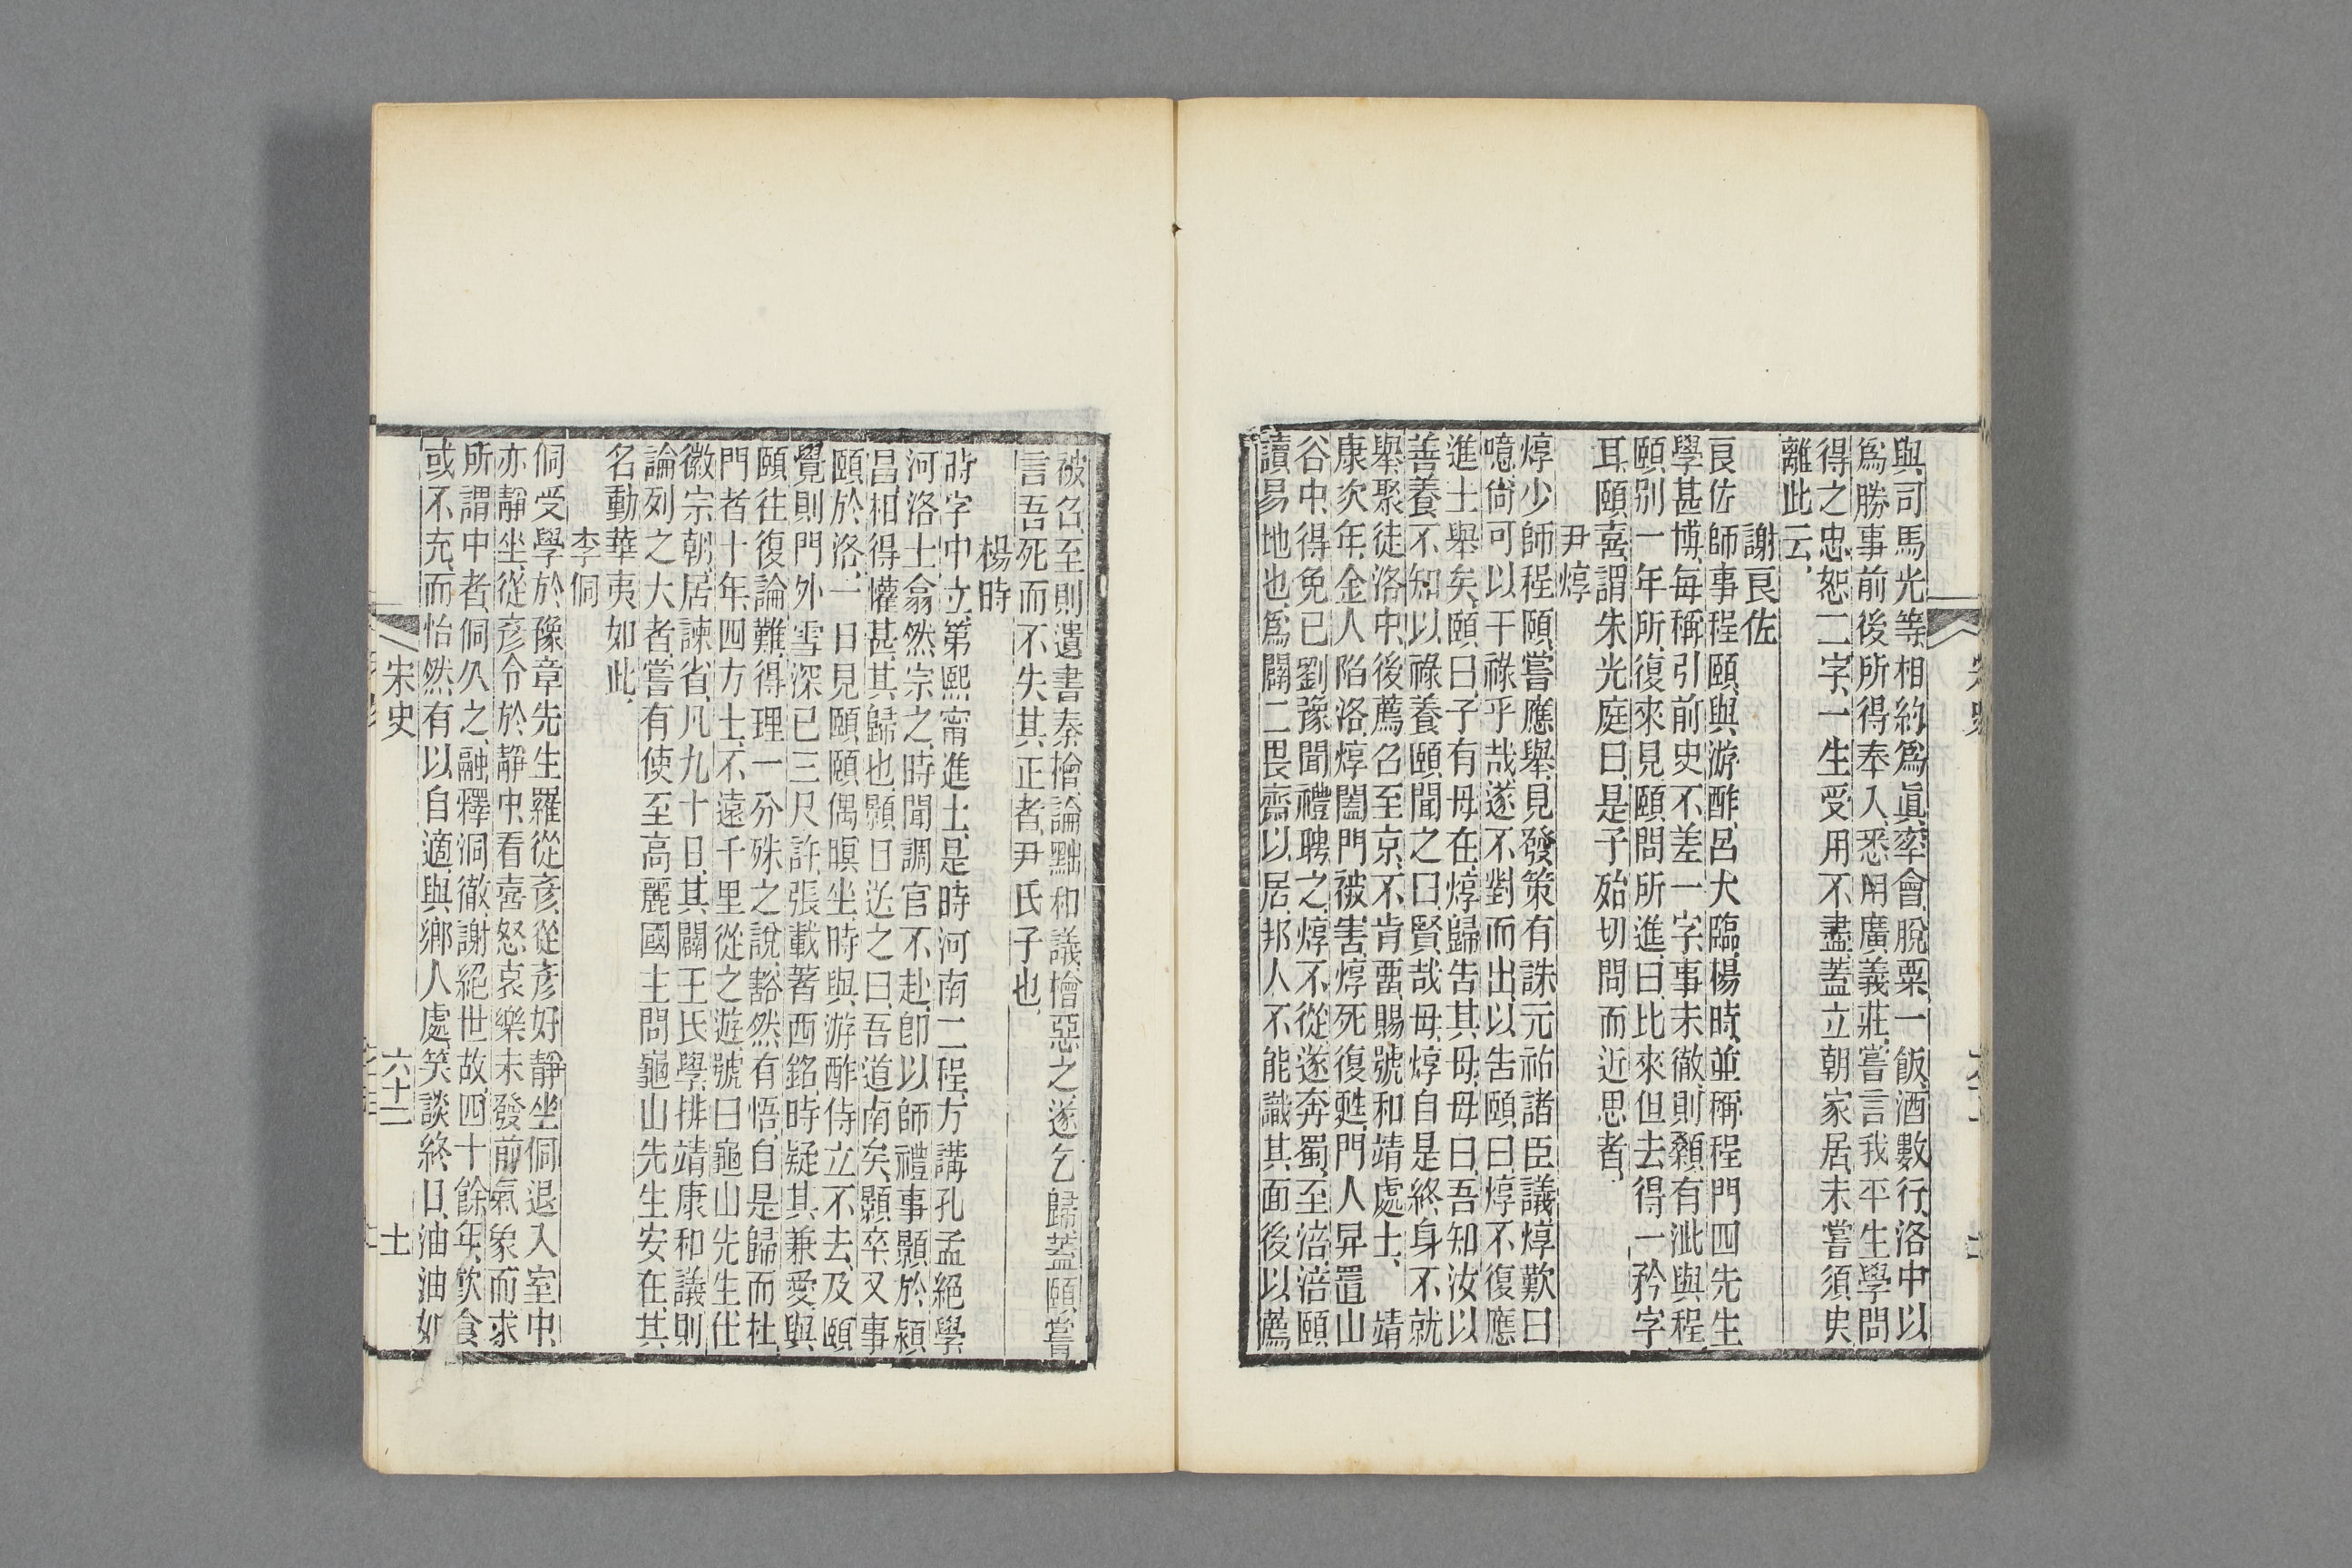 與司馬光等相約爲眞率會、脫粟一飯、酒數行、洛中以
爲勝事、前後所得奉入、悉用廣義莊、嘗言我平生學問
得之忠恕二字、一生受用不盡、蓋立朝家居、未嘗須臾
離此云、
謝良佐
良佐師事程頤、與游酢、呂大臨、楊時、並稱程門四先生
學甚博、每稱引前史、不差一字、事未徹、則顙有泚、與程
頤別一年所、復來見、頤問所進、曰、比來但去得一矜字
耳、頤喜謂朱光庭曰、是子殆切問而近思者、
尹焞
焞少師程頤、嘗應舉、見發策有誅元祐諸臣議、焞歎曰
噫、尙可以干祿乎哉、遂不對而出、以吿頤曰、焞不復應
進士舉矣、頤曰、子有母在、焞歸吿其母、母曰、吾知汝以
善養、不知以祿養、頤聞之曰、賢哉母、焞自是終身不就
舉、聚徒洛中、後薦召至京、不肯畱、賜號和靖處士、靖
康次年、金人陷洛、焞闔門被害、焞死復甦、門人舁置山
谷中、得免、已劉豫聞禮聘之、焞不從、遂奔蜀、至涪、涪頤
讀易地也、爲闢二畏齋以居、邦人不能識其面、後以薦
被召、至則遺書秦檜、論黜和議、檜惡之、遂乞歸、蓋頤嘗
言吾死而不失其正者、尹氏子也、
楊時
時字中立、第熙甯進士、是時河南二程、方講孔孟絕學
河洛士翕然宗之、時聞調官不赴、卽以師禮事顥於潁
昌、相得懽甚、其歸也、顥目送之曰、吾道南矣、顥卒、又事
頤於洛、一日見頤、頤偶瞑坐、時與游酢侍立不去、及頤
覺、則門外雪深已三尺許、張載著西銘、時疑其兼愛、與
頤往復論難、得理一分殊之說、豁然有悟、自是歸而杜
門者十年、四方士、不遠千里從之遊、號曰龜山先生、仕
徽宗朝、居諫省、凡九十日、其闢王氏學、排靖康和議、則
論列之大者、嘗有使至高麗、國主問龜山先生安在、其
名動華夷如此、
李侗
侗受學於豫章先生羅從彥、從彥好靜坐、侗退入室中、
亦靜坐、從彥令於靜中看喜怒哀樂未發前氣象、而求
所謂中者、侗久之、融釋洞徹、謝絕世故、四十餘年、飮食
或不充、而怡然有以自適、與鄉人處、笑談終日、油油如
宋史 六十二 十一